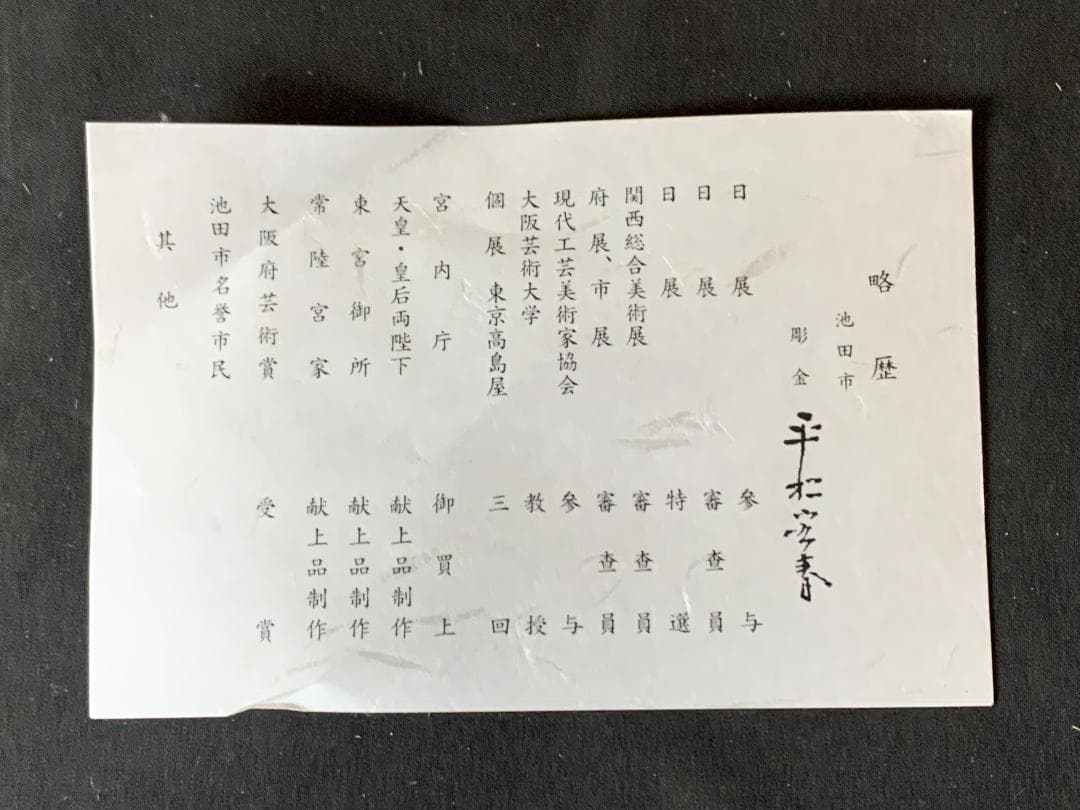 略歴
池田市
彫金 平松宏春
日展 参与
日展 審査員
日展 特選
関西総合美術展 審査員
府展、市展 審査員
現代工芸美術家協会 参与
大阪芸術大学 教授
個展 東京高島屋 三回
宮内庁 御買上
天皇・皇后両陛下 献上品制作
東宮御所 献上品制作
常陸宮家 献上品制作
大阪府芸術賞 受賞
池田市名誉市民
其他